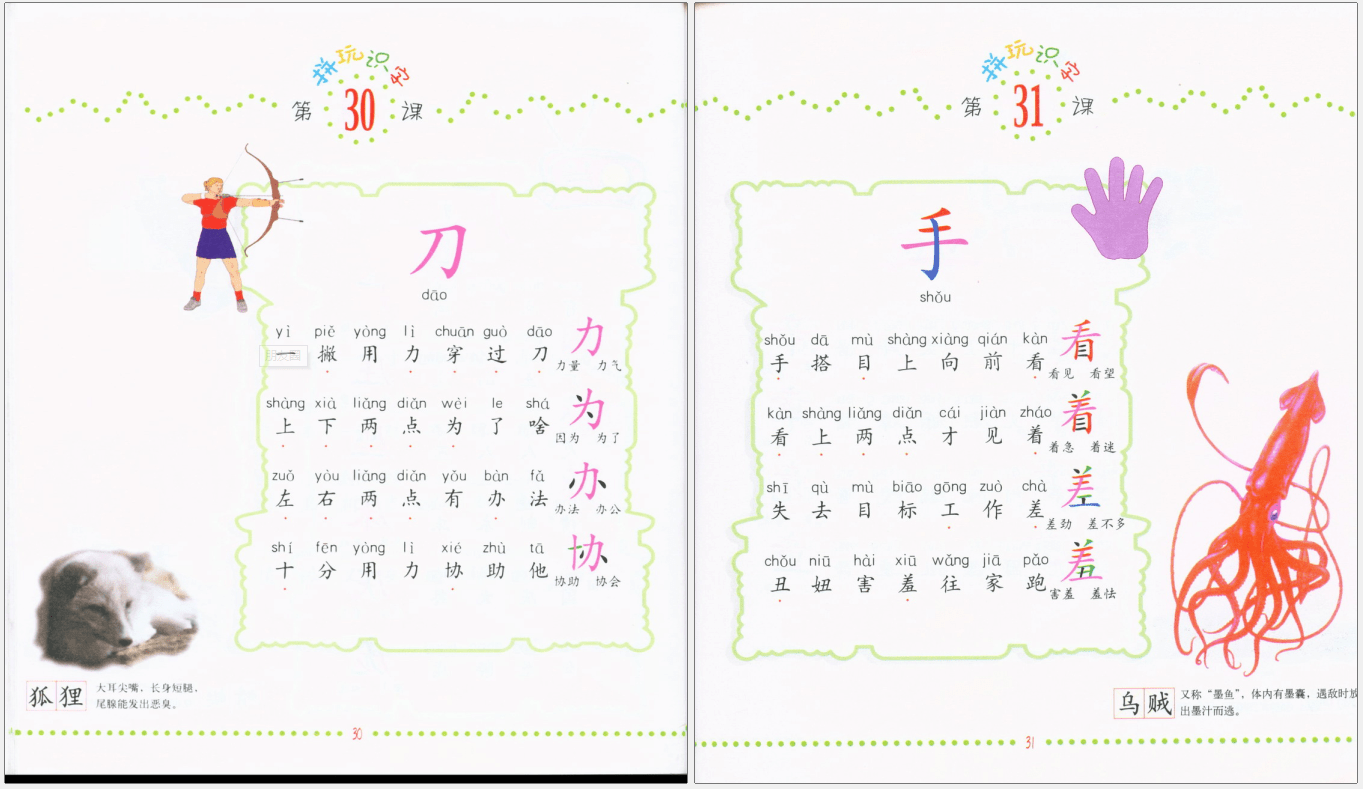 拼玩识字
第 30 课
刀
dāo
yì piě yòng lì chuān guò dāo
一 撇 用 力 穿 过 刀
力
力量 力气
shàng xià liǎng diǎn wèi le shá
上 下 两 点 为 了 啥
为
因为 为了
zuǒ yòu liǎng diǎn yǒu bàn fǎ
左 右 两 点 有 办 法
办
办法 办公
shí fēn yòng lì xié zhù tā
十 分 用 力 协 助 他
协
协助 协会
狐狸
大耳尖嘴，长身短腿，
尾腺能发出恶臭。
30
拼玩识字
第 31 课
手
shǒu
shǒu dā mù shàng xiàng qián kàn
手 搭 目 上 向 前 看
看
看见 看望
kàn shàng liǎng diǎn cái jiàn zháo
看 上 两 点 才 见 着
着
着急 着迷
shī qù mù biāo gōng zuò chà
失 去 目 标 工 作 差
差
差劲 差不多
chǒu niū hài xiū wǎng jiā pǎo
丑 妞 害 羞 往 家 跑
羞
害羞 羞怯
乌贼
又称“墨鱼”，体内有墨囊，遇敌时放
出墨汁而逃。
31